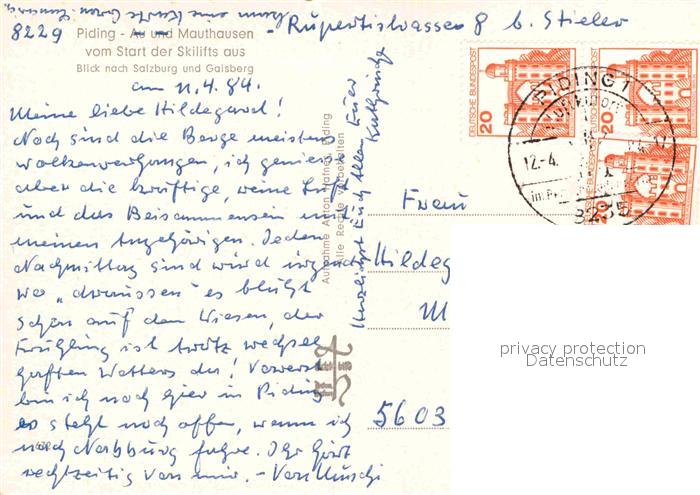 8229
- Rupertistrasse 8 b. Stieler
Piding - Au und Mauthausen
vom Start der Skilifts aus
Blick nach Salzburg und Gaisberg
am 11.4.84.
Meine liebe Hildegard!
Noch sind die Berge meistens
wolkenverhangen, ich geniesse
aber die kräftige, reine Luft
und das Beisammensein mit
meinen Angehörigen. Jeden
Nachmittag sind wir irgend
wo "draussen" es blüht
schon auf den Wiesen, der
Frühling ist trotz wechsel
haften Wetters da! Vorerst
bin ich noch hier in Piding
es steht noch offen, wann ich
nach Nabburg fahre. Ihr hört
rechtzeitig von mir. - Von Muschi
Herzlichst Euch Allen Euer
Aufnahme Anton Hafner, Piding
Alle Rechte vorbehalten
Frau
Hildeg
M
5603
DEUTSCHE BUNDESPOST
20
20
20
PIDING 1
12.-4.
8235
privacy protection
Datenschutz